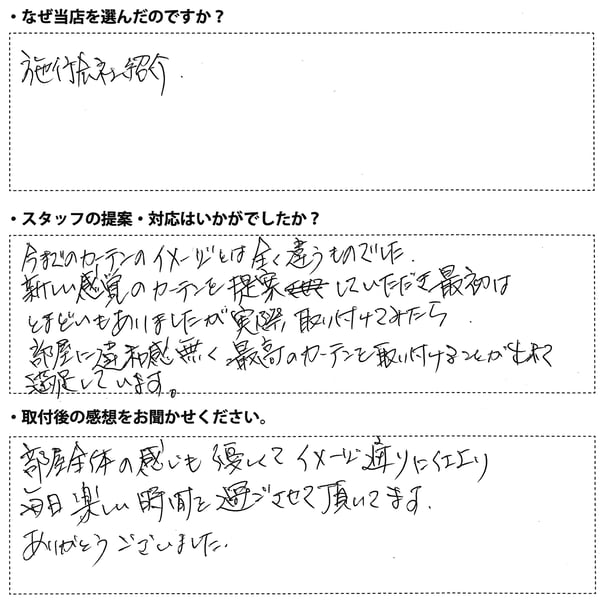 ・なぜ当店を選んだのですか？
施行会社紹介.
・スタッフの提案・対応はいかがでしたか？
今までのカーテンのイメージとは全く違うものでした.
新しい感覚のカーテンを提案していただき最初は
とまどいもありましたが実際、取り付けてみたら
部屋に違和感無く最高のカーテンを取り付けることが出来て
満足しています。
・取付後の感想をお聞かせください。
部屋全体の感じも優しくてイメージ通りに仕上り
毎日楽しい時間を過ごさせて頂いてます.
ありがとうございました.